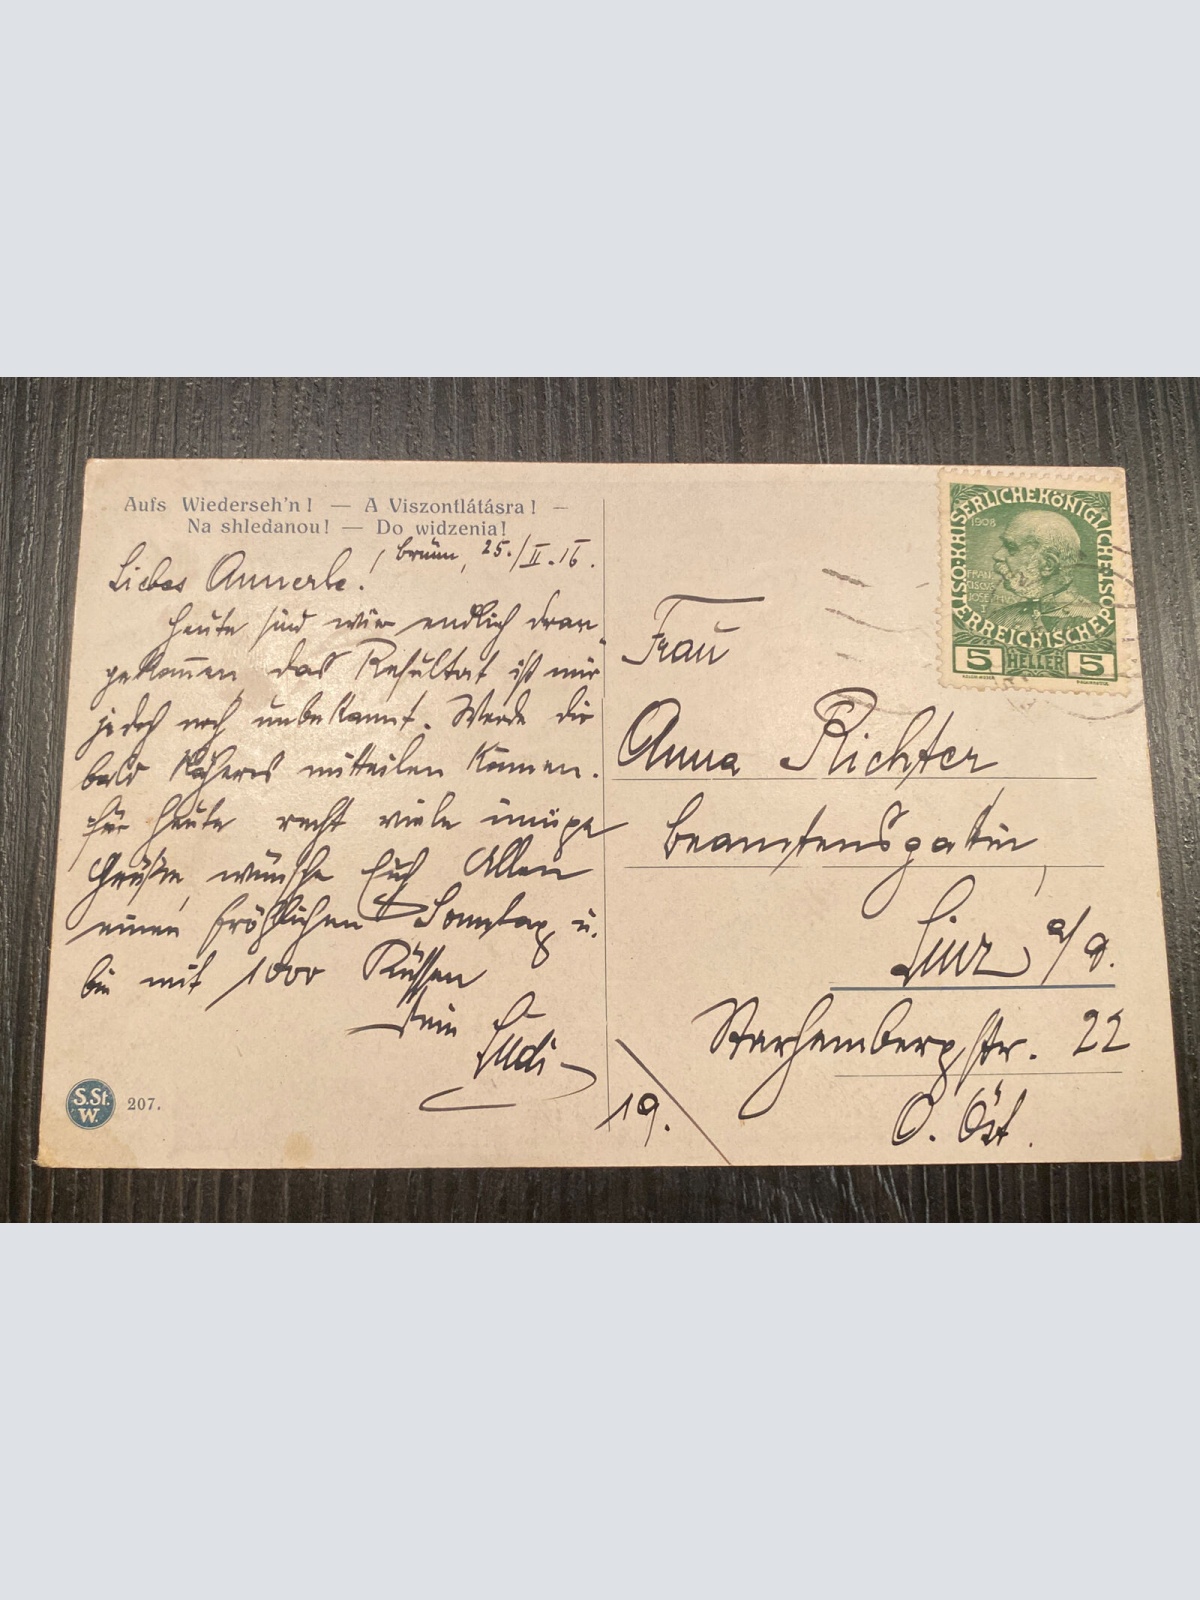 Aufs Wiederseh'n! — A Viszontlátásra! —
Na shledanou! — Do widzenia!
Brünn, 25./II.16.
Liebes Annerle!
Heute sind wir endlich dran-
gekom̅en das Resultat ist mir
jedoch noch unbekannt. Werde dir
bald Näheres mitteilen können.
Für heute recht viele innige
Grüße, wünsche Euch Allen
einen fröhlichen Sonntag u.
bin mit 1000 Küssen
Dein
S.St.
W.
207.
ÖSTERREICHISCHE POST KAISERLICHEKÖNIGLICHE
1908
FRANCISCUS JOSEPHUS I
5 HELLER 5
Frau
Anna Richter
Beamtensgattin,
Linz a/D.
Starhembergstr. 22
O. Öst.
19.